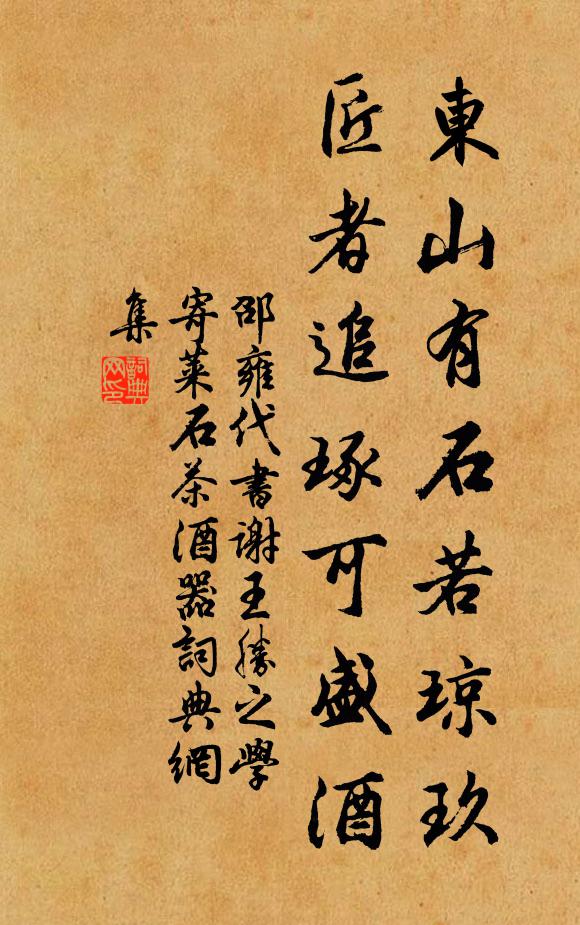 東山有石若琼玖
匠者追琢可盛酒
邵雍代書謝王勝之學
寄莱石茶酒器詞典網
集
詞典
网印